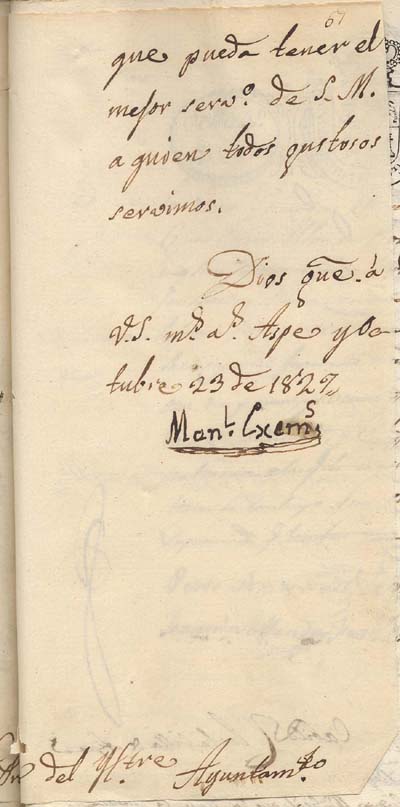 67
que pueda tener el
mejor servo. de S. M.
a quien todos gustosos
servimos.
Dios gue. á
V.S. ms. as. Aspe y Oc-
tubre 23 de 1829
Manl. Cxems.
del Yltre Ayuntamto